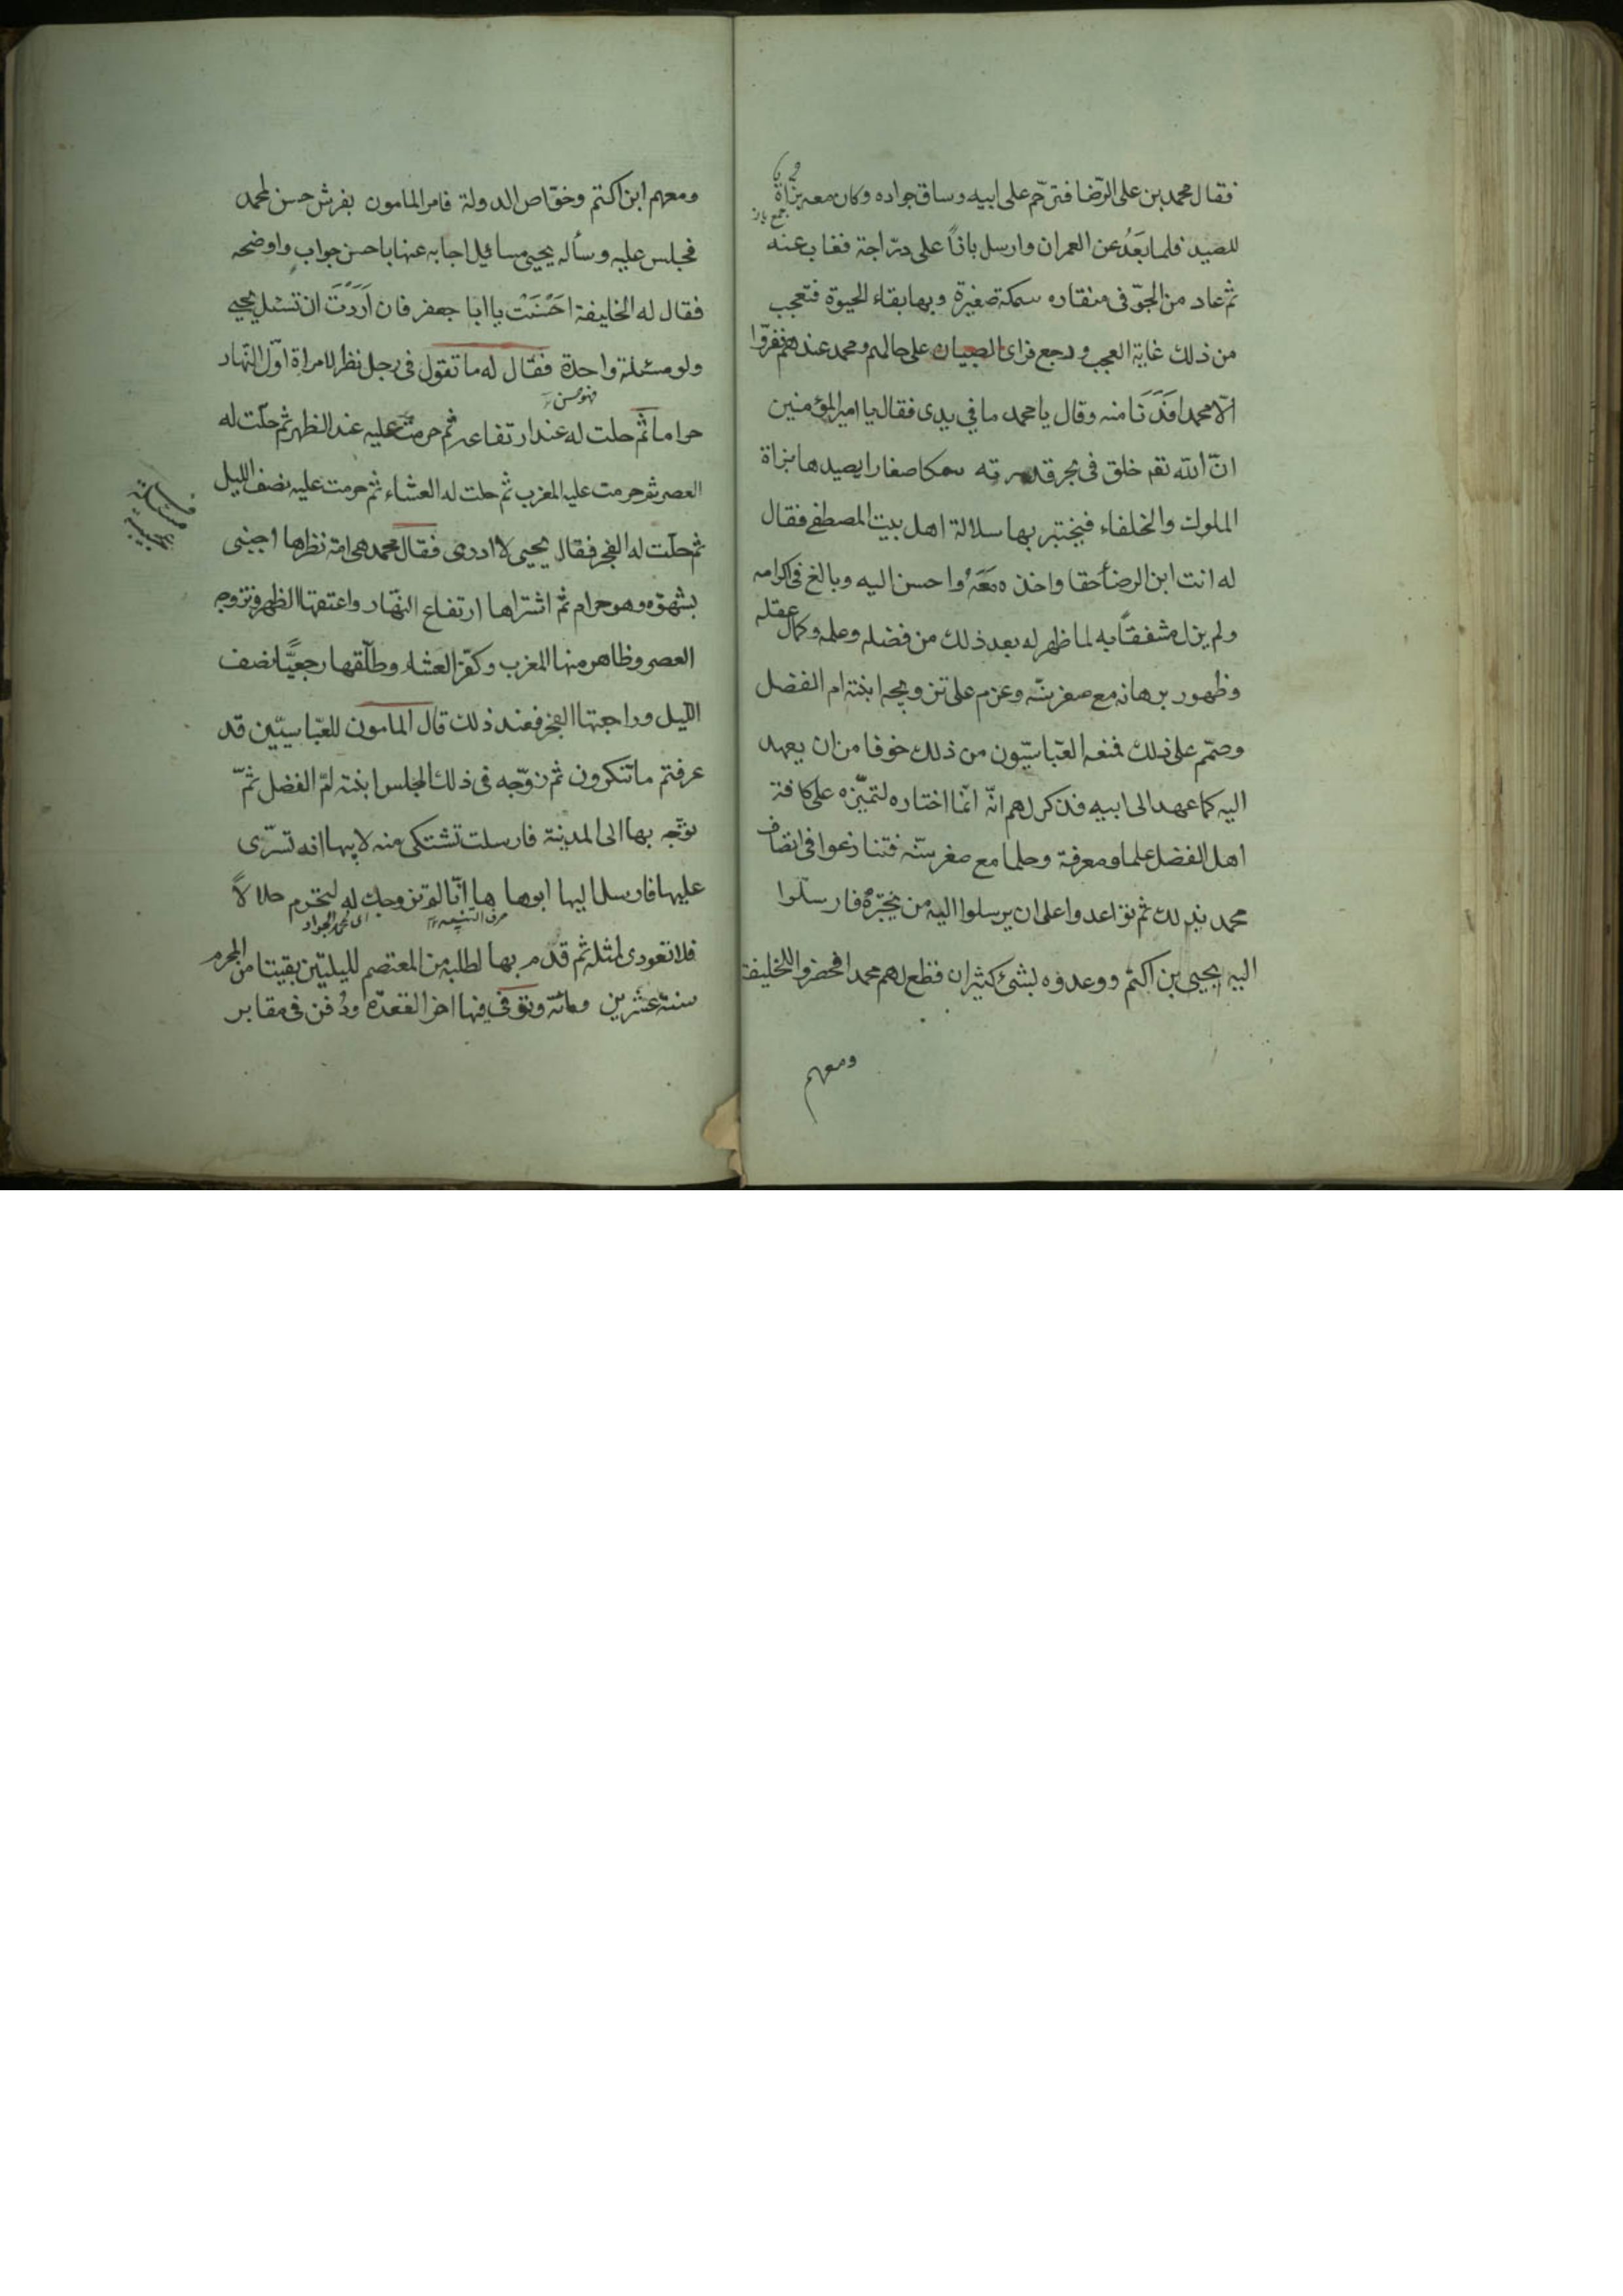 فقال محمد بن على الرّضا فترحّم على ابيه وساق جواده وكان معه بزاة
جمع باز
للصيد فلما بَعَدُ عن العمران وارسل بازاً على درّاجة فغاب عنه
ثم عاد من الجوّ فى منقاره سمكة صغيرة وبها بقاء الحيوة فتعجب
من ذلك غاية العجب ورجع فراى الصبيان على حالهم ومحمد عندهم ففرّوا
الّا محمدا فَدَنَا منه وقال يا محمد ما في يدى فقال يا امير المؤمنين
انّ الله تعم خلق فى بحر قدرته سمكا صغارا يصيدها بزاة
الملوك والخلفاء فيختبر بها سلالة اهل بيت المصطفى فقال
له انت ابن الرضا حقا واخذه مَعَهُ واحسن اليه وبالغ فى اكرامه
ولم يزل مشفقًا به لما ظهر له بعد ذلك من فضله وعلمه وكمال عقله
وظهور برهانه مع صغر سنّه وعزم على تزويجه ابنته ام الفضل
وصمّم على ذلك فمنعه العبّاسيّون من ذلك خوفا من ان يعهد
اليه كما عهد الى ابيه فذكر لهم انّه انّما اختاره لتميّزه على كافة
اهل الفضل علما ومعرفة وحلما مع صغر سنّه فتنازعوا فى اتصاف
محمد بذلك ثم تواعدوا على ان يرسلوا اليه من يختبره فارسلوا
اليه يحيى بن اكثم ووعدوه بشئ كثير ان قطع لهم محمدا فحضروا للخليفة
ومعهم
ومعهم ابن اكثم وخوّاص الدولة فامر المامون بفرش حسن لمحمد
فجلس عليه وسأله يحيى مسائيل اجابه عنها باحسن جواب واوضحه
فقال له الخليفة احَسَنْتَ يا ابا جعفر فان اَرَدْتَ ان تسئل يحيى
ولو مسئلة واحدة فقال له ما تقول فى رجل نظر لامراة اوّل النّهار
حراما ثم حلت له عند ارتفاعه ثم حرمت عليه عند الظهر ثم حلّت له
العصر ثم حرمت عليه المغرب ثم حلت له العشاء ثم حرمت عليه نصف الليل
ثم حلّت له الفجر فقال يحيى لا ادرى فقال محمد هى امة نظرها اجنبى
بشهوة وهو حرام ثم اشتراها ارتفاع النّهار واعتقها الظهر وتزوجه
العصر وظاهر منها المغرب وكفّر العشاء وطلّقها رجعيًّا نصف
الليل وراجعتها الفجر فعند ذلك قال المامون للعبّاسيّين قد
عرفتم ما تنكرون ثم زوّجه فى ذلك المجلس ابنته امّ الفضل ثمّ
توجّه بها الى المدينة فارسلت تشتكى منه لابيها انه تسرّى
عليها فارسل اليها ابوها ها انّا لم نزوجك له لنحرم حلالاً
اى محمد الجواد
فلا تعودى لمثله ثم قدم بها لطلبه من المعتصم لليلتين بقيتا من المحرم
سنة عشرين ومائة وتوفّى فيها اخر القعدة ودُفن فى مقابر